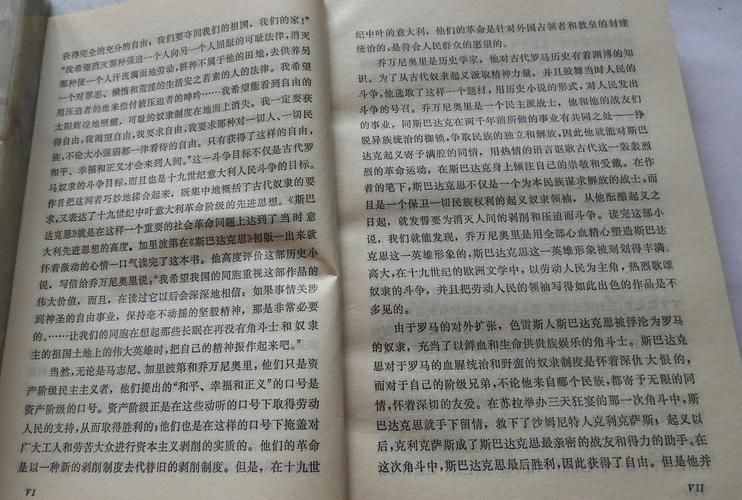 获得完全的充分的自由：我们要夺回我们的祖国，我们的家！”
“我希望消灭那种强迫一个人向另一个人屈服的可耻法律，消灭
那种使一个人汗流满面地劳动，耕种不属于他的田地，去供养另
一个对罪恶、懒惰和荒淫的生活安之若素的人的法律。我希望
用压迫者的血来偿付被压迫者的呻吟……我希望能看到自由的
太阳辉煌地照耀，可耻的奴隶制度在地面上消失。我一定要获
得自由，我渴望自由，我要求自由，我要求那种对一切人，一切民
族，不论大小强弱都一律看待的自由。只有获得了这样的自由，
和平、幸福和正义才会来到人间。”这一斗争目标不仅是古代罗
马奴隶的斗争目标，而且也是十九世纪意大利人民斗争的目标。
作者把这两者巧妙地揉合起来，既集中地概括了古代奴隶的要
求，又表达了十九世纪中叶意大利革命阶级的先进思想。《斯巴
达克思》就是在这样一个重要的社会革命问题上达到了当时意
大利先进思想的高度。加里波第在《斯巴达克思》初版一出来就
怀着激动的心情一口气读完了这本书。他高度评价这部历史小
说，写信给乔万尼奥里说：“我希望我国的同胞重视这部作品的
伟大价值，而且，在读过它以后会深深地相信：如果事情关涉
到神圣的自由事业，保持毫不动摇的坚毅精神，那是非常必要
的。……让我们的同胞在想起那些长眠在再没有角斗士和奴隶
主的祖国土地上的伟大英雄时，把自己的精神振作起来吧。”
当然，无论是马志尼、加里波第和乔万尼奥里，他们只是资
产阶级民主主义者，他们提出的“和平、幸福和正义”的口号是
资产阶级的口号。资产阶级正是在这些动听的口号下取得劳动
人民的支持，从而取得胜利的；他们也是在这样的口号下掩盖对
广大工人和劳苦大众进行资本主义剥削的实质的。他们的革命
是以一种新的剥削制度去代替旧的剥削制度。但是，在十九世
VI
纪中叶的意大利，他们的革命是针对外国占领者和教皇的封建
统治的，是符合人民群众的愿望的。
乔万尼奥里是历史学家，他对古代罗马历史有着渊博的知
识。为了从古代奴隶起义汲取精神力量，并且鼓舞当时人民的
斗争，他选取了这样一个题材，用历史小说的形式，对人民发出
斗争的号召。乔万尼奥里是一个民主派战士，他和他的战友们
的事业，同斯巴达克思在两千年前所做的事业有共同之处——挣
脱异族统治的枷锁，争取民族的独立和解放，因此他就能对斯巴
达克思起义寄予满腔的同情，用热情的语言讴歌古代这一轰轰烈
烈的革命运动，在斯巴达克思身上倾注自己的崇敬和爱戴。在作
者的笔下，斯巴达克思不仅是一个为本民族谋求解放的战士，而
且是一个保卫一切民族权利的起义奴隶领袖，从他酝酿起义之
日起，就发誓要为消灭人间的剥削和压迫而斗争。读完这部小
说，我们就能发现，乔万尼奥里是用全部心血精心塑造斯巴达
克思这一英雄形象的，斯巴达克思这一英雄形象被刻划得丰满、
高大，在十九世纪的欧洲文学中，以劳动人民为主角，热烈歌颂
奴隶的斗争，并且把劳动人民的领袖写得如此出色的作品是不
多见的。
由于罗马的对外扩张，色雷斯人斯巴达克思被俘沦为罗马的
奴隶，充当了以鲜血和生命供贵族娱乐的角斗士。斯巴达克
思对于罗马的血腥统治和野蛮的奴隶制度是怀着深仇大恨的，
而对于自己的阶级兄弟，不论他来自哪个民族，都寄予无限的同
情，怀着深切的友爱。在苏拉举办三天狂宴的那一次角斗中，斯
巴达克思就手下留情，救下了沙姆尼特人克利克萨斯；起义以
后，克利克萨斯成了斯巴达克思最亲密的战友和得力的助手。在
这次角斗中，斯巴达克思最后胜利，因此获得了自由。但是他并
VII